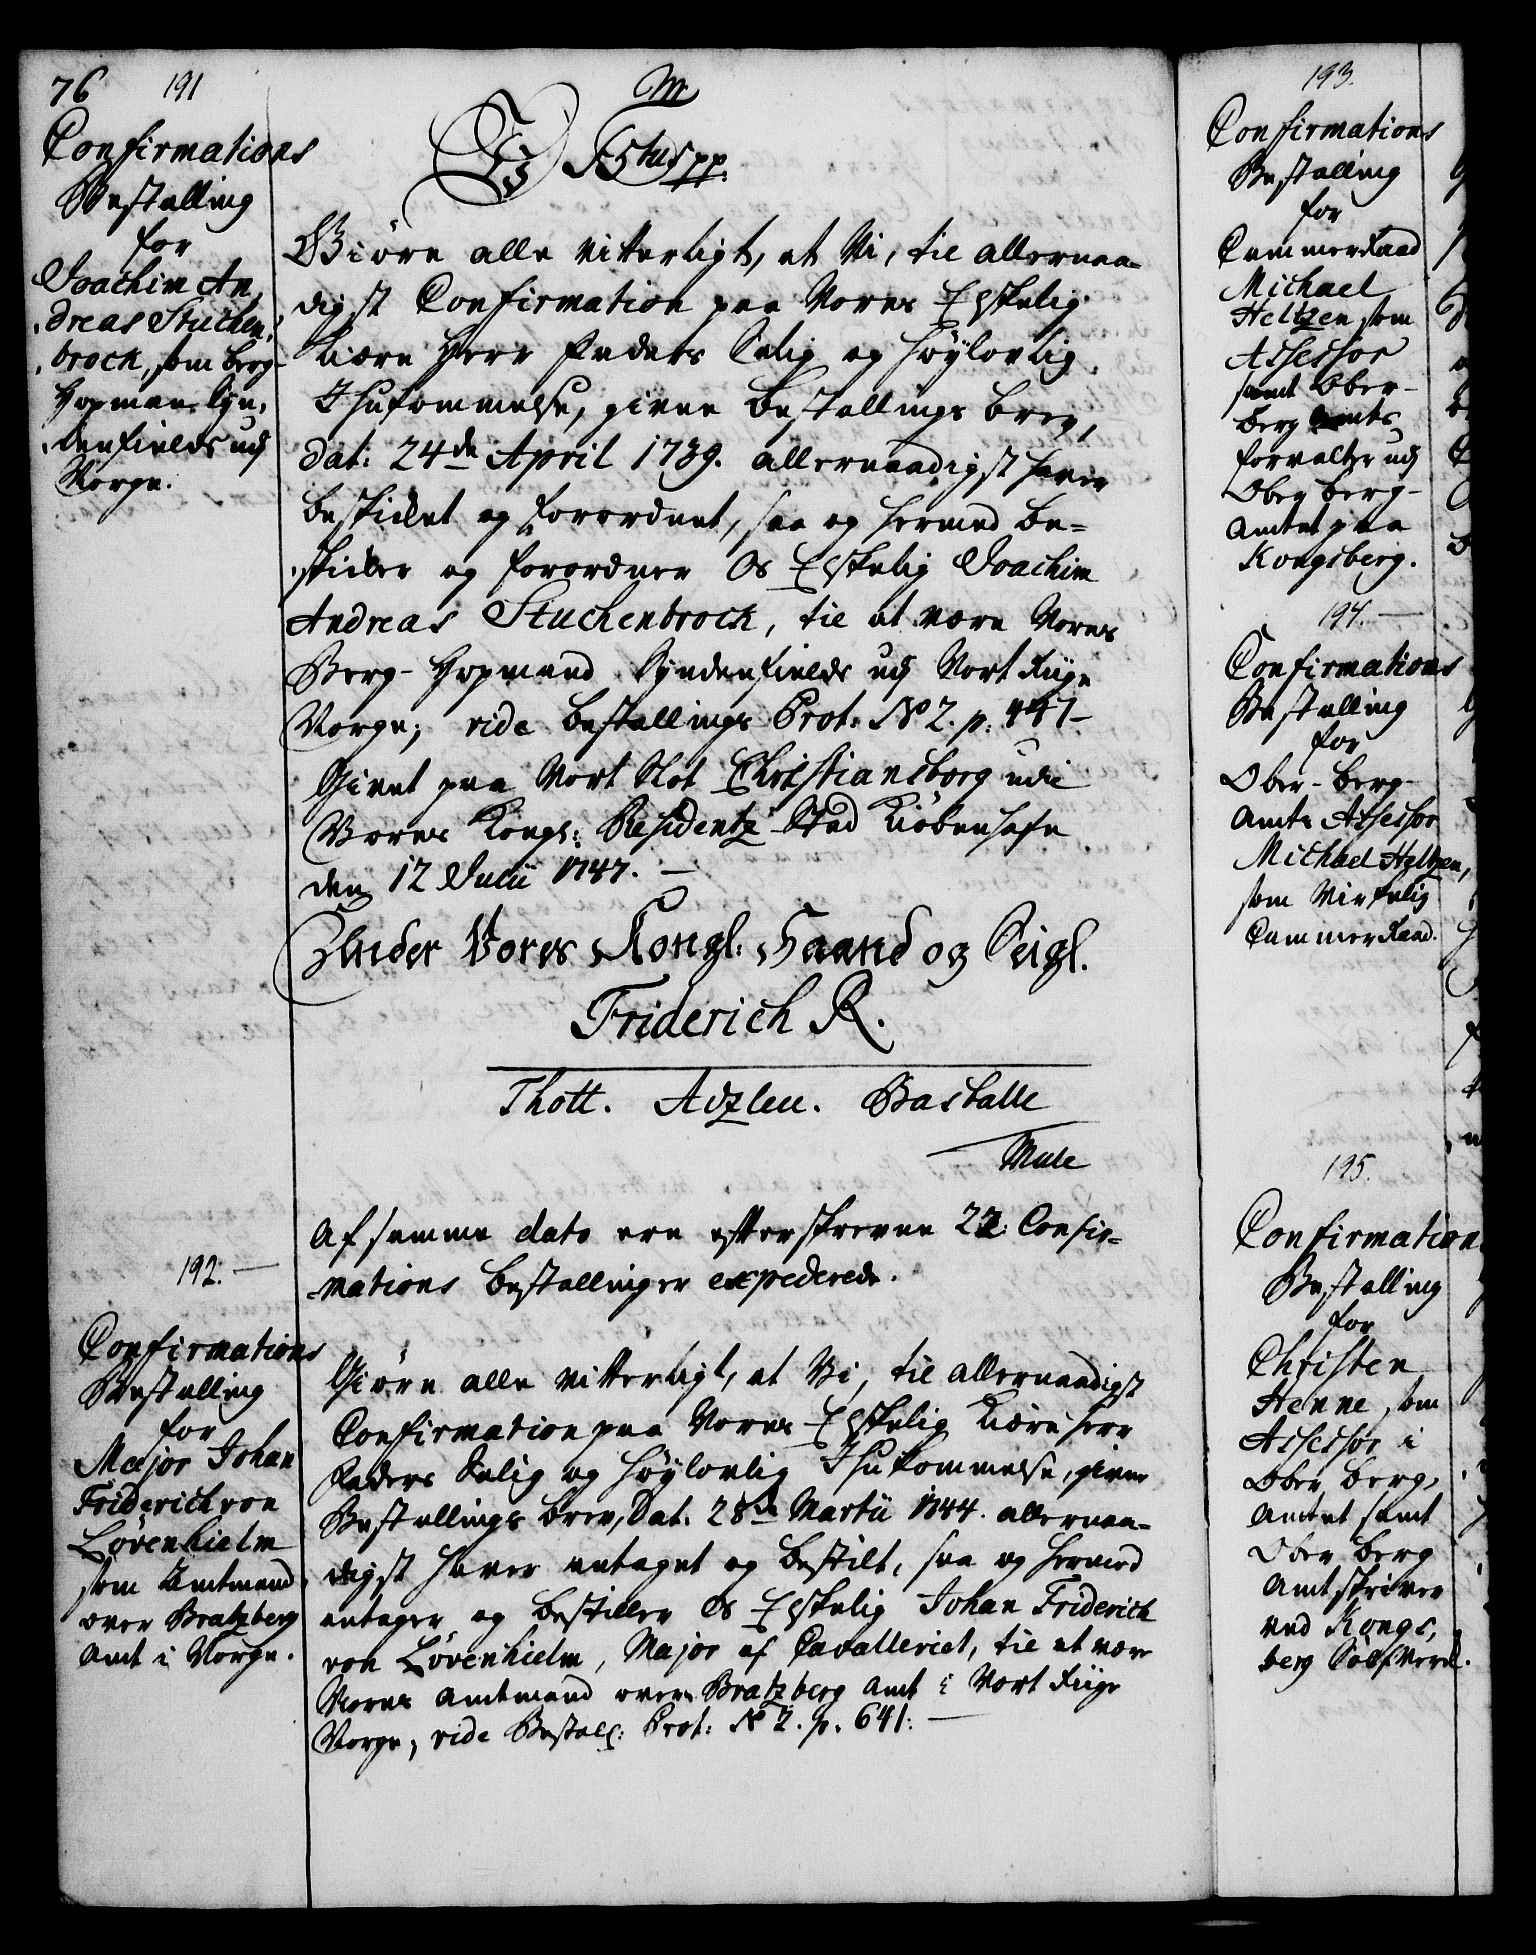 76
191
Confirmations
Bestalling
for
Joachim An
dreas Stuchen,
brock, som berg-
Hopman Syn,
denfields udj
Norge.
Giøre alle vitterligt, at Vi, til allernaa-
digst Confirmation paa Vores Elskelig
kiære Herr Faders Salig og Høylovlig
Ihukommelse, givne bestallings brev,
dat: 24de April 1739. allernaadigst haver
beskicket og forordnet, saa og hermed be-
skicker og forordner Os Elskelig Joachim
Andreas Stuchenbrock, til at være Vores
Berg-Hopmand Syndenfields udj Vort Riige
Norge; vide bestallings Prot: No 2. p: 447-
Givet paa Vort Slot Christiansborg udi
Vores Kongl: Residentz Stad Kiøbenhafn
den 12 Julii 1747. —
Under Vores Kongl: Haand og Seigl.
Friderich R.
Thott. Adzleu. Bachalle
Mule
Af samme dato ere efterskrevne 22 Confir-
mations bestallinger expederede.
192. —
Confirmations
Bestalling
for
Major Johan
Friderich von
Lövenhielm
som Amtmand
over Bratzberg
Amt i Norge.
Giøre alle vitterligt, at Vi, til allernaadigst
Confirmation paa Vores Elskelig Kiære Herr
Faders Salig og Høylovlig Ihukommelse, givne
Bestallings brev, Dat: 28de Martii 1744. allernaa-
digst haver antaget og bestilt, saa og hermed
antager og bestiller Os Elskelig Johan Friderich
von Lövenhielm, Major af Cavalleriet, til at være
Vores Amtmand over Bratzberg Amt i Vort Riige
Norge, vide Bestall: Prot: No 2. p. 641: —
193.
Confirmations
Bestalling
for
Cammerraad
Michael
Heltzen som
Assessor
samt Ober-
berg Amts
forvalter udj
Ober berg-
Amtet paa
Kongsberg.
194. —
Confirmations
Bestalling
for
Ober-berg-
Amts Assessor
Michael Heltzen,
som Virkelig
Cammerraad.
195.
Confirmation
Bestalling
for
Christen
Henne, som
Assessor i
Ober berg,
Amtet samt
Ober berg
Amtskriver
ved Kongs,
berg Sølfverk.